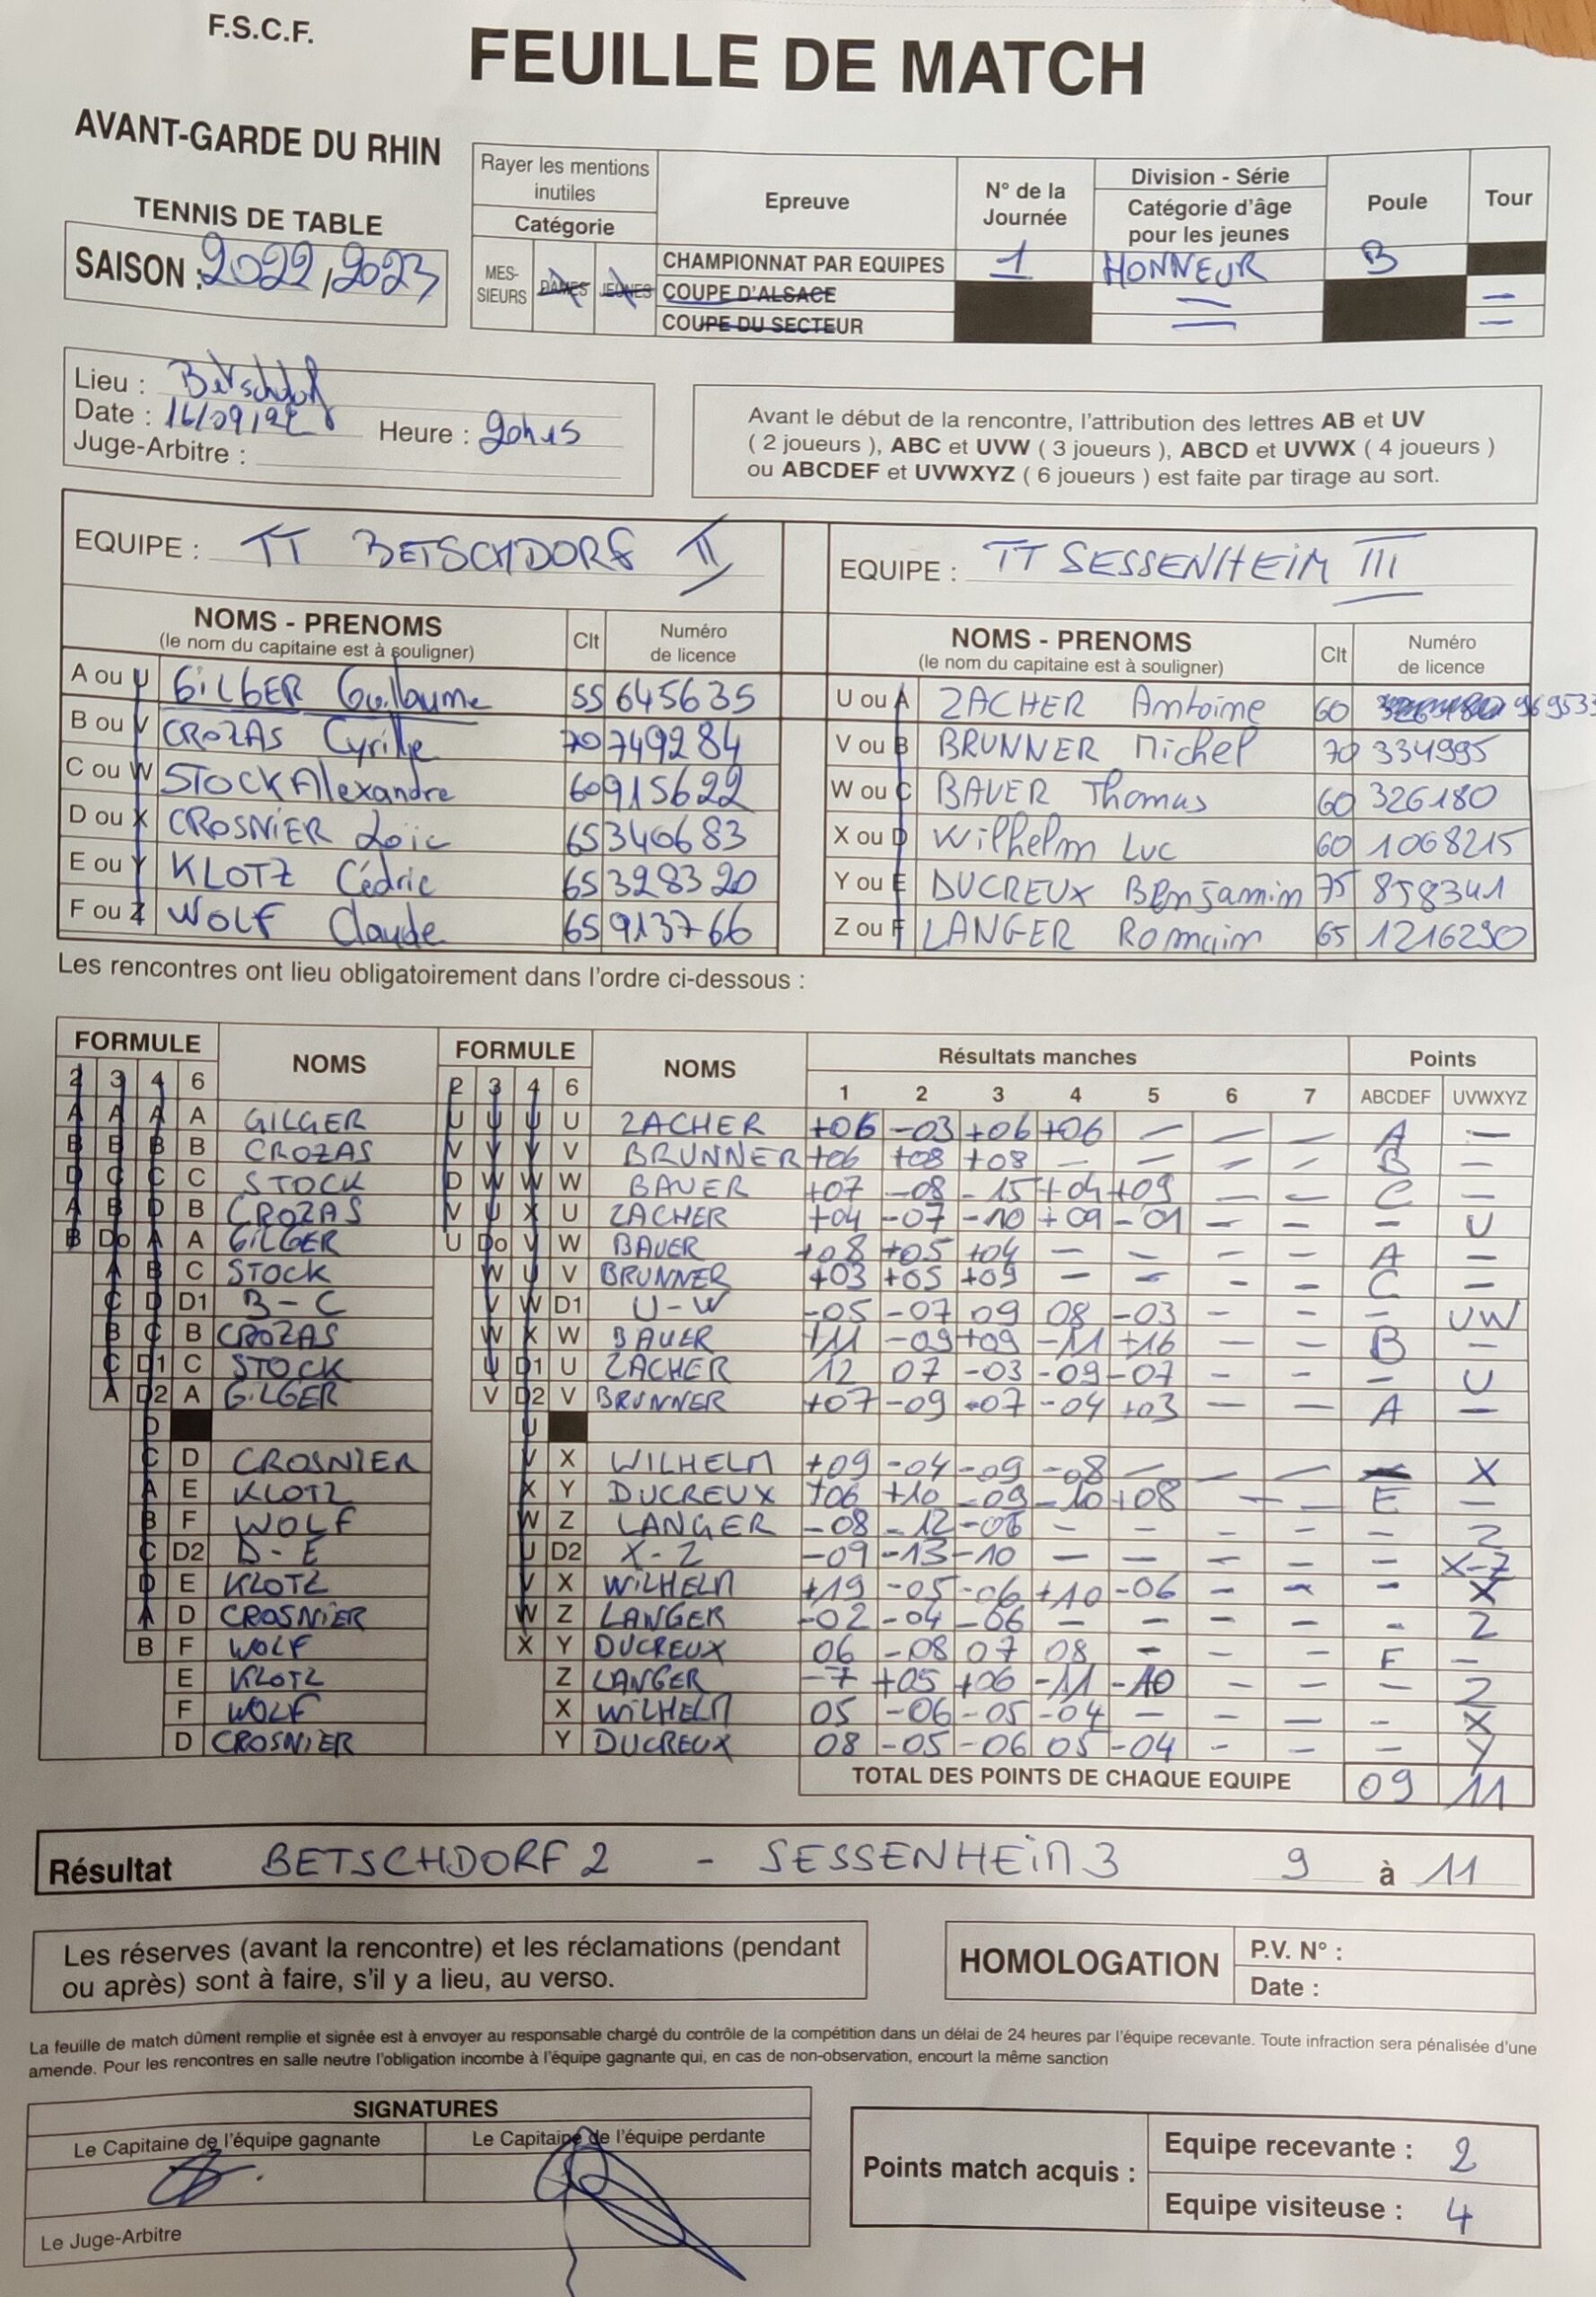 F.S.C.F.
FEUILLE DE MATCH
AVANT-GARDE DU RHIN
TENNIS DE TABLE
SAISON : 2022/2023
Rayer les mentions inutiles
Catégorie
MES-SIEURS DAMES JEUNES
Epreuve
N° de la Journée
Division - Série
Catégorie d'âge pour les jeunes
Poule
Tour
CHAMPIONNAT PAR EQUIPES 1 HONNEUR B
COUPE D'ALSACE — —
COUPE DU SECTEUR — —
Lieu : Betschdorf
Date : 16/09/22 Heure : 20h15
Juge-Arbitre :
Avant le début de la rencontre, l'attribution des lettres AB et UV
( 2 joueurs ), ABC et UVW ( 3 joueurs ), ABCD et UVWX ( 4 joueurs )
ou ABCDEF et UVWXYZ ( 6 joueurs ) est faite par tirage au sort.
EQUIPE : TT BETSCHDORF II
EQUIPE : TT SESSENHEIM III
NOMS - PRENOMS
(le nom du capitaine est à souligner)
Clt
Numéro de licence
A ou U GILGER Guillaume 55 645635
B ou V CROZAS Cyrille 70 749284
C ou W STOCK Alexandre 60 915622
D ou X CROSNIER Loïc 65 340683
E ou Y KLOTZ Cédric 65 328320
F ou Z WOLF Claude 65 913766
NOMS - PRENOMS
(le nom du capitaine est à souligner)
Clt
Numéro de licence
U ou A ZACHER Antoine 60
V ou B BRUNNER Michel 70 334995
W ou C BAUER Thomas 60 326180
X ou D Wilhelm Luc 60 1068215
Y ou E DUCREUX Benjamin 75 858341
Z ou F LANGER Romain 65 1216290
Les rencontres ont lieu obligatoirement dans l'ordre ci-dessous :
FORMULE NOMS FORMULE NOMS Résultats manches Points
2 3 4 6 2 3 4 6 1 2 3 4 5 6 7 ABCDEF UVWXYZ
A A A A GILGER U U U U ZACHER +06 -03 +06 +06 — — — A —
B B B B CROZAS V V V V BRUNNER +06 +08 +08 — — — — B —
D C C C STOCK D W W W BAUER +07 -08 -15 +04 +09 — — C —
A B D B CROZAS V U X U ZACHER +04 -07 -10 +09 -01 — — — U
B Do A A GILGER U Do V W BAUER +08 +05 +04 — — — — A —
A B C STOCK W U V BRUNNER +03 +05 +09 — — - - C —
C D D1 B-C V W D1 U-W -05 -07 09 08 -03 - - — UW
B C B CROZAS W X W BAUER +11 -09 +09 -11 +16 - - B —
C D1 C STOCK U D1 U ZACHER 12 07 -03 -09 -07 - - — U
A D2 A GILGER V D2 V BRUNNER +07 -09 +07 -04 +03 — — A —
D U
C D CROSNIER V X WILHELM +09 -04 -09 -08 — — — — X
A E KLOTZ X Y DUCREUX +06 +10 -09 -10 +08 — — E —
B F WOLF W Z LANGER -08 -12 -06 - - - - - Z
C D2 D-E U D2 X-Z -09 -13 -10 — — — — — X-Z
D E KLOTZ V X WILHELM +19 -05 -06 +10 -06 - - - X
A D CROSNIER W Z LANGER -02 -04 -06 — - - - - Z
B F WOLF X Y DUCREUX 06 -08 07 08 - - - F —
E KLOTZ Z LANGER -7 +05 +06 -11 -10 - - — Z
F WOLF X WILHELM 05 -06 -05 -04 — - — - X
D CROSNIER Y DUCREUX 08 -05 -06 05 -04 - - — Y
TOTAL DES POINTS DE CHAQUE EQUIPE 09 11
Résultat BETSCHDORF 2 - SESSENHEIM 3 9 à 11
Les réserves (avant la rencontre) et les réclamations (pendant
ou après) sont à faire, s'il y a lieu, au verso.
HOMOLOGATION
P.V. N° :
Date :
La feuille de match dûment remplie et signée est à envoyer au responsable chargé du contrôle de la compétition dans un délai de 24 heures par l'équipe recevante. Toute infraction sera pénalisée d'une
amende. Pour les rencontres en salle neutre l'obligation incombe à l'équipe gagnante qui, en cas de non-observation, encourt la même sanction
SIGNATURES
Le Capitaine de l'équipe gagnante
Le Capitaine de l'équipe perdante
Le Juge-Arbitre
Points match acquis :
Equipe recevante : 2
Equipe visiteuse : 4